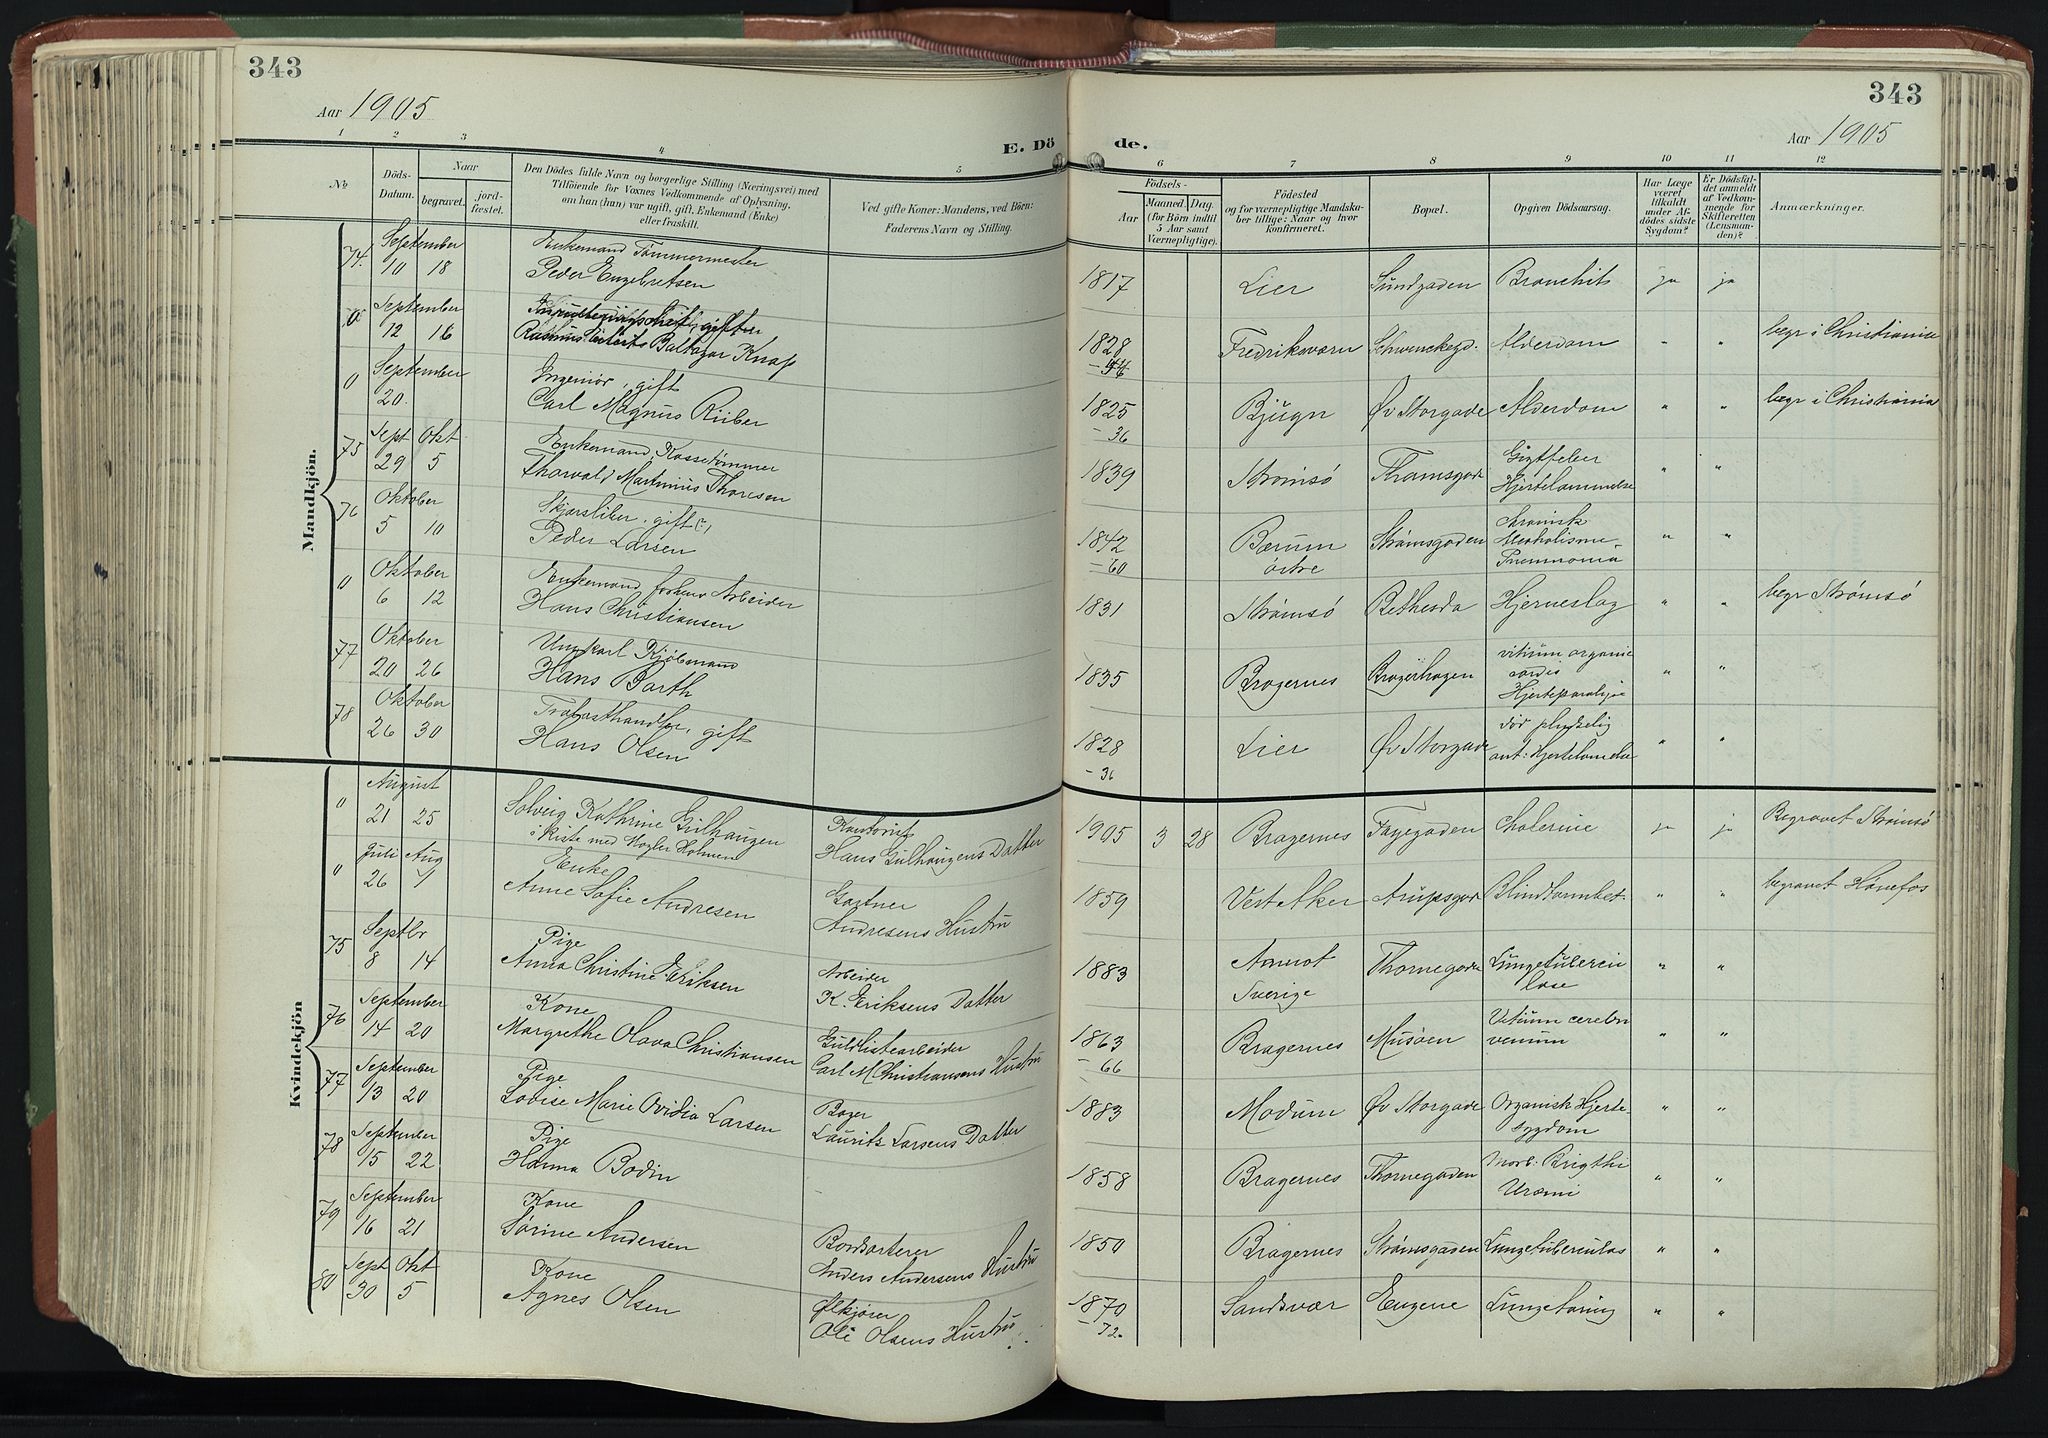 343
343
Aar 1905
E. Dö
de.
Aar 1905
1
2
3
4
5
6
7
8
9
10
11
12
No
Döds-
Datum.
Naar
begravet.
jord-
fæstet.
Den Dödes fulde Navn og borgerlige Stilling (Næringsvei) med
Tilföiende for Voxnes Vedkommende af Oplysning,
om han (hun) var ugift, gift, Enkemand (Enke)
eller fraskilt.
Ved gifte Koner: Mandens, ved Börn:
Faderens Navn og Stilling.
Födsels-
Aar
Maaned.
Dag.
(for Börn indtil
5 Aar samt
Værnepligtige).
Födested
og for værnepligtige Mandska-
ber tillige: Naar og hvor
Konfirmeret.
Bopæl.
Opgiven Dödsaarsag.
Har Læge
været
tilkaldt
under Af-
dödes sidste
Sygdom?
Er Dödsfal-
det anmeldt
af Vedkom-
mende for
Skifteretten
(Lensman-
den)?
Anmærkninger.
Mandkjön.
74. September 10 18 Enkemand Tømmermester
Peder Engebretsen 1817 Lier Sundgaden Bronchit ja ja
0 September 12 16 gift
Rasmus Balthazar Knap 1828 Fredriksværn Schwenckegd. Alderdom " " begr i Christiania
0 September 20. Ingeniør, gift
Carl Magnus Rüber 1825 - 36 Bjugn Øv Storgade Alderdom " " begr i Christiania
75 Sept 29 Okt 5 Enkemand,
Thorvald Martinius Thoresen 1839 Strömsö Thamsgade Gigtfeber
Hjertelammelse " "
76 Oktober 5 10 Skjærsliber, gift (?)
Peder Larsen 1842 - 60 Bærum
østre Strömsgaden kronisk
Alcoholisme
Pneumonia " "
0 Oktober 6 12 Enkemand, forhenv Arbeider
Hans Christiansen 1831 Strømsö Bethesda Hjerneslag " " begr Strømsö
77 Oktober 20 26 Ungkarl Kjöbmand
Hans Barth 1835 Bragernes Bragerhagen vitium organic
cordis
Hjerteparalyse " "
78 Oktober 26 30 Trælasthandler, gift
Hans Olsen 1828 - 36 Lier Øv Storgade dör pludselig
ant: Hjertelamelse " "
Kvindekjön
0 August 21 25 Solveig Kathrine Gulhaugen
i Kiste med Holmen Kontorist
Hans Gulhaugens Datter 1905 3 28 Bragernes Fayegaden Cholerine ja ja Begravet Strömsö
0 Juli 26 Aug 1 Enke
Anne Sofie Andresen Gartner
Andresens Hustru 1859 Vest Aker Arupsgad Blindtarmbet. " " begravet Hönefos
75 Septbr 8 14 Pige
Anna Christine Eriksen Arbeider
K. Eriksens Datter 1883
Sverige Thornegade Lungetuberku
lose " "
76 September 14 20 Kone
Margrethe Olava Christiansen Guldlistearbeider
Carl M Christiansens Hustru 1863 - 66 Bragernes Musöen Vitium " "
77 September 13 20 Pige
Lovise Marie Ovidia Larsen Bager
Laurits Larsens Datter 1883 Modum Øv Storgade Organisk Hjerte-
sygdom " "
78 September 15 22 Pige
Hanna Bodin 1858 Bragernes Thornegaden Morb: Brigthi
Uræmi " "
79 September 16 21 Kone
Sørine Andersen Bordsorterer
Anders Andersens Hustru 1850 Bragernes Strömsgaden Lungetuberculos " "
80 Sept 30 Okt 5 Kone
Agnes Olsen Ølkjörer
Ole Olsens Hustru 1870 - 72. Sandsvær Eugene Lungetæring " "